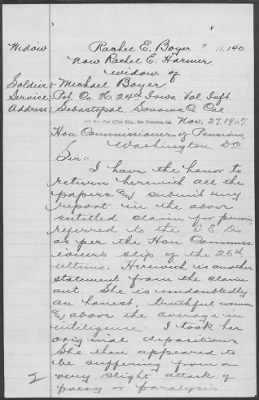 Widow, Rachel E. Boyer 11,140
Now Rachel E. Harmer,
widow of
Soldier: Michael Boyer
Service: Pvt. Co. H. 24th Iowa Vol Inft.
Address: Sebastopol, Sonoma Co Cal
Nov. 27, 1907
Hon Commissioner of Pensions
Washington D.C.
Sir:-
I have the honor to
return herewith all the
papers & submit my
report in the above
entitled claim for pension
referred to the S. E. Div
as per the Hon Commiss-
ioner's slip of the 26th
ultimo. Herewith is another
statement from the claim-
ant. She is undoubtedly
an honest, truthful woman
& above the average in
intelligence. I took her
original deposition.
She then appeared to
be suffering from a
very slight attack of
palsy or paralysis
I